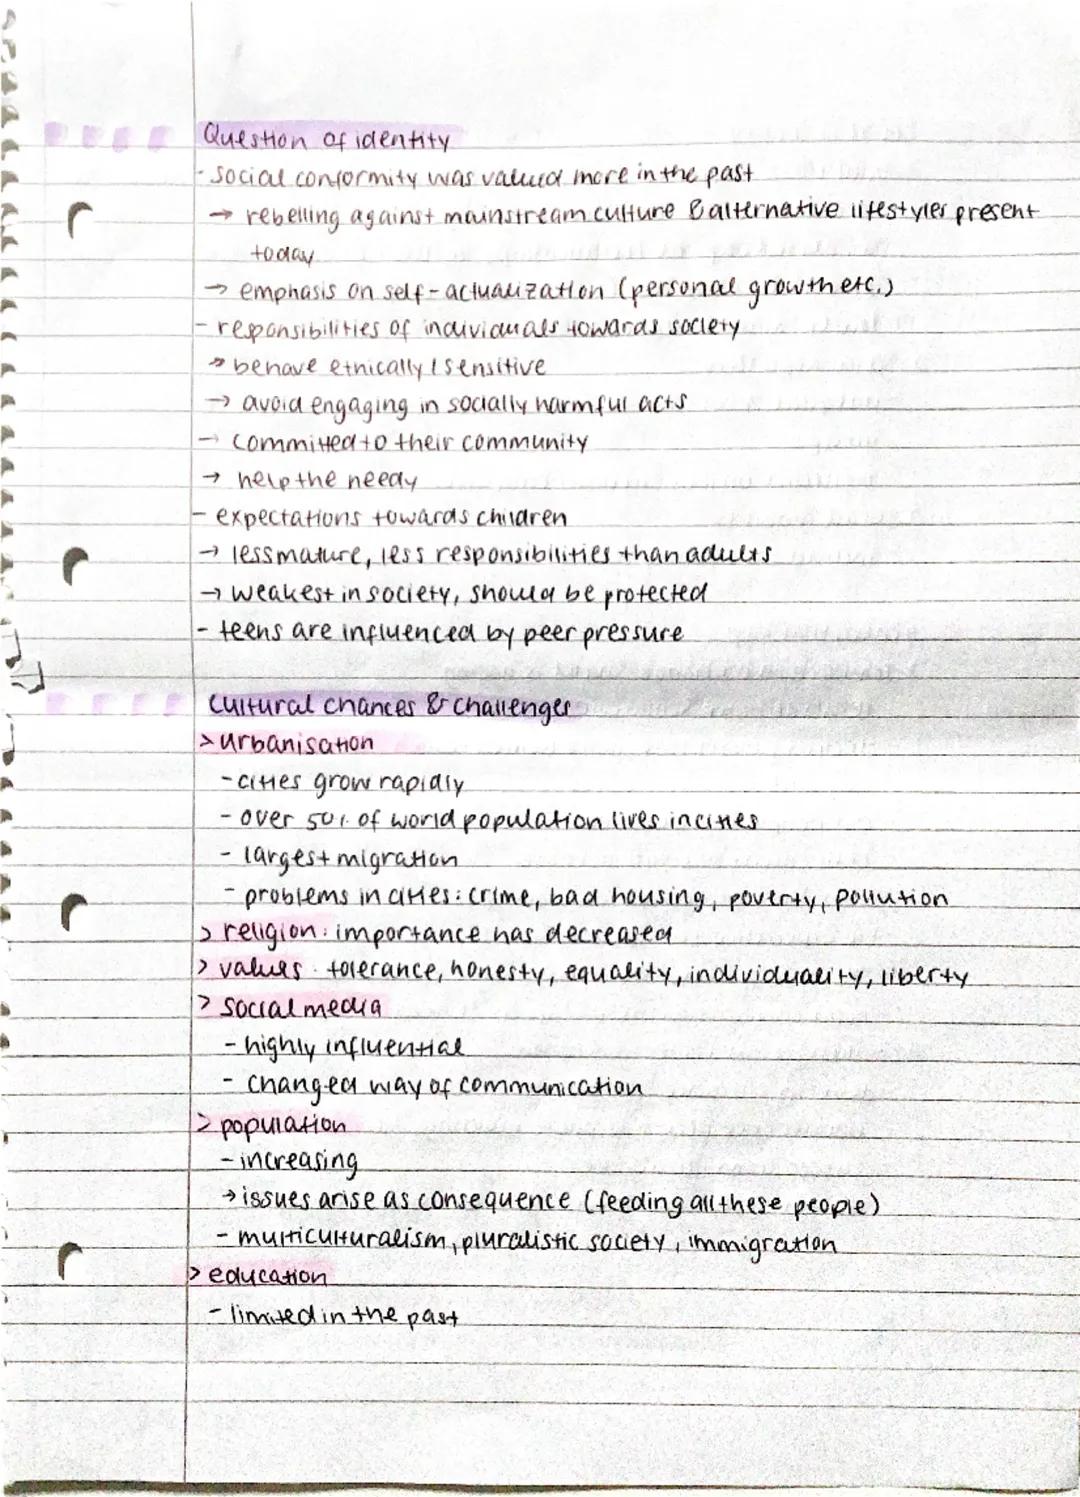 Question of identity
- social conformity was valued more in the past
→ rebelling against mainstream culture & alternative lifestyles present
today
→ emphasis on self-actualization (personal growth etc.)
- responsibilities of individuals towards society
→ behave ethically / sensitive
→ avoid engaging in socially harmful acts
→ committed to their community
→ help the needy
- expectations towards children
→ less mature, less responsibilities than adults
→ weakest in society, should be protected
- teens are influenced by peer pressure
Cultural chances & challenges
> urbanisation
- cities grow rapidly
- over 50% of world population lives in cities
- largest migration
- problems in cities: crime, bad housing, poverty, pollution
> religion: importance has decreased
> values: tolerance, honesty, equality, individuality, liberty
> social media
- highly influential
- changed way of communication
> population
- increasing
→ issues arise as consequence (feeding all these people)
- multiculturalism, pluralistic society, immigration
> education
- limited in the past